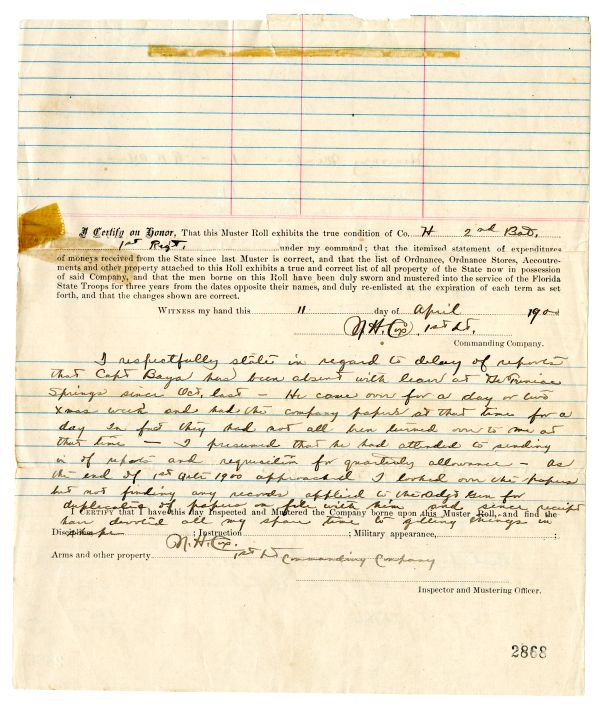 I Certify on Honor, That this Muster Roll exhibits the true condition of Co. H 2nd Bat,
1st Regt, under my command; that the itemized statement of expenditures
of moneys received from the State since last Muster is correct, and that the list of Ordnance, Ordnance Stores, Accoutre-
ments and other property attached to this Roll exhibits a true and correct list of all property of the State now in possession
of said Company, and that the men borne on this Roll have been duly sworn and mustered into the service of the Florida
State Troops for three years from the dates opposite their names, and duly re-enlisted at the expiration of each term as set
forth, and that the changes shown are correct.
WITNESS my hand this 11 day of April 1900
N. H. Cox, 1st Lt.
Commanding Company.
I respectfully state in regard to delay of reports
that Capt Bays has been absent with leave at De Funiac
Springs since Oct. last – He came over for a day or two
Xmas week and had the company papers at that time for a
day In fact they had not all been turned over to me at
that time — I presumed that he had attended to sending
in of reports and requisition for quarterly allowance – as
the end of 1st Qrtr 1900 approached I looked over the papers
but not finding any records applied to the Adjt Gen for
duplicates of papers on file with him and since receipt
I CERTIFY that I have this day Inspected and Mustered the Company borne upon this Muster Roll, and find the
have devoted all my spare time to getting things in
Discipline ; Instruction ; Military appearance,
shape N. H. Cox.
Arms and other property 1st Lt Commanding Company
Inspector and Mustering Officer.
2868